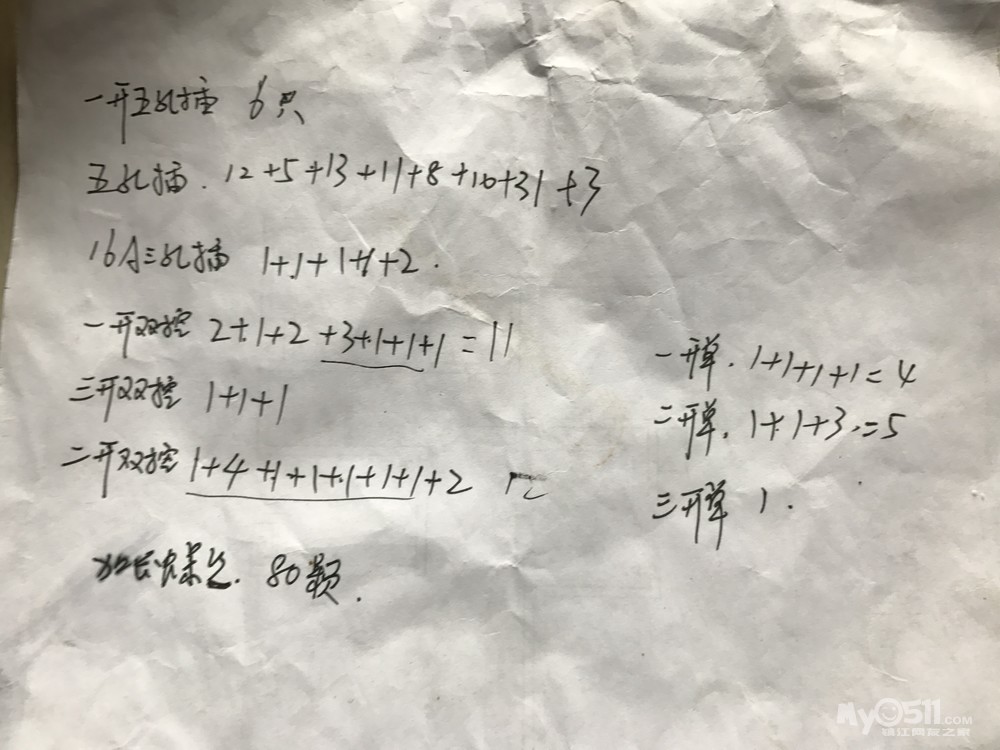 一开五孔插 6只
五孔插. 12+5+13+11+8+10+31+3
16A三孔插 1+1+1+1+2.
一开双控 2+1+2+3+1+1+1=11
三开双控 1+1+1
二开双控 1+4+1+1+1+1+1+2 12
加长螺丝. 80颗.
一开单. 1+1+1+1=4
二开单. 1+1+3.=5
三开单 1.
My0511.COM
镇江网友之家